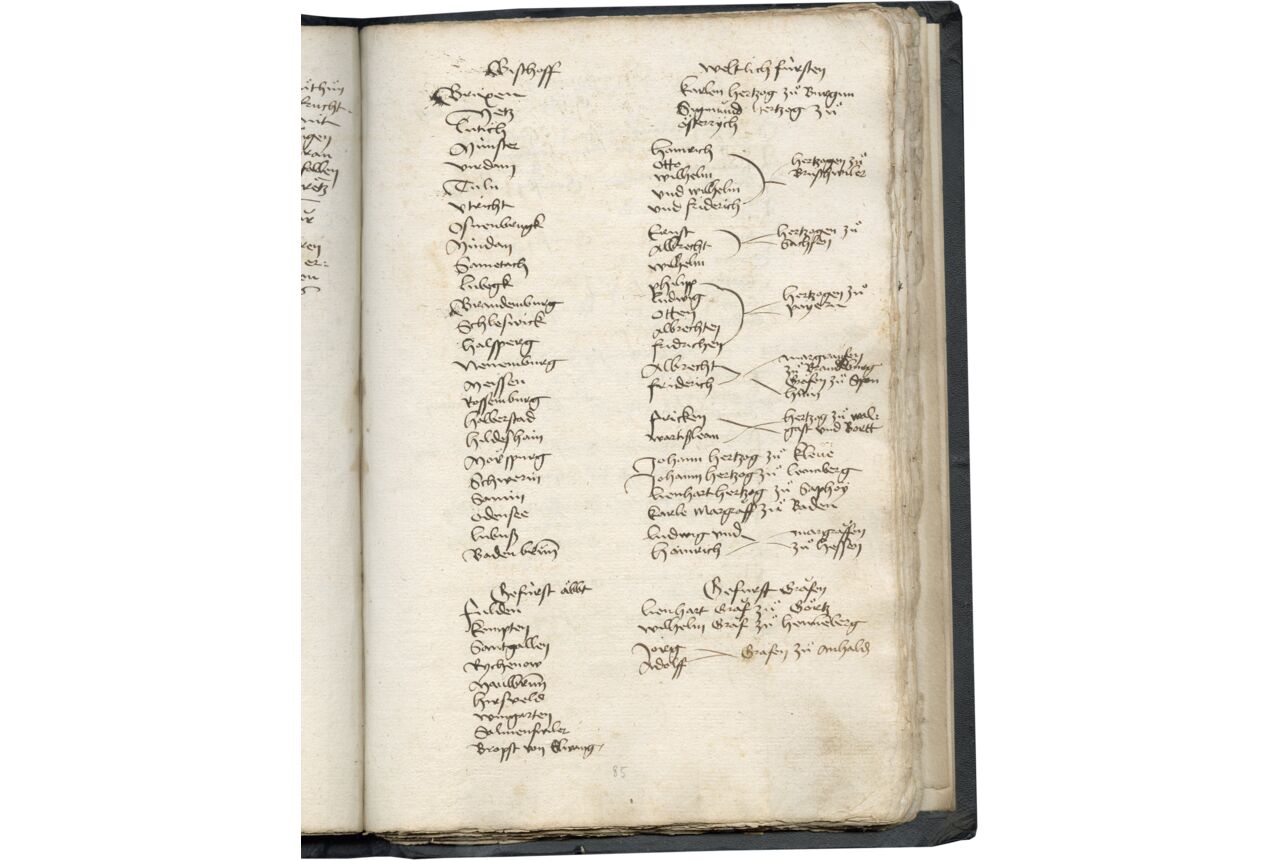 Bischoff
Brixen
Metz
Lutich
Münster
Virdam
Tüln
Vtricht
Osnenbrugk
Mindan
Lubegk
Brandemburg
Schleswick
Halsperg
Neuemburg
Meissen
Rossemburg
Halberstad
Hildeshain
Mörspurg
Schwerin
Samin
Odensee
Lubuß
Gefürst äbbt
Fulden
Kempten
Santgallen
Rychenow
Maulbrun̄
Hirsveld
Wingarten
Salmenswiler
Bropst von Elwang
weltlich fürsten
Karlen Hertzog zů Burgun
Sygmund Hertzog zů
Österrych
Hainrich
Otto
Wilhelm
vnd wilhelm
vnd friderich
Hertzogen zů
Ernst
Albrecht
Wilhelm
Hertzogen zů
Sachsen
philipp
Ludwig
Otten
Albrechten
fridrichen
Hertzogen zů
payern
Albrecht
friderich
margrauen
zů Brandburg
Grafen zů Spon
Haim
Fricken
wartislean
Hertzog zů wal:
gast vnd Bartt
Johann Hertzog zů Kleüe
Johann Hertzog zů
Lienhart Hertzog zů Saphoy
Karle Margraff zů Baden
Ludwig vnd
Hainrich
margraffen
zů Hessen
Gefürst Grafen
Lienhart Graf zů Görtz
Wilhelm Graf zů Henneberg
Jorig
Adolff
Grafen zů Anhald
85